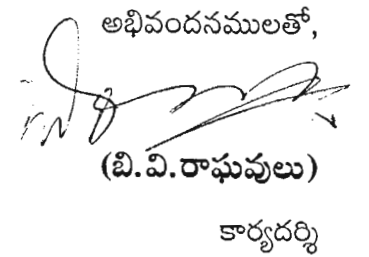 అభివందనములతో,
(బి.వి.రాఘవులు)
కార్యదర్శి